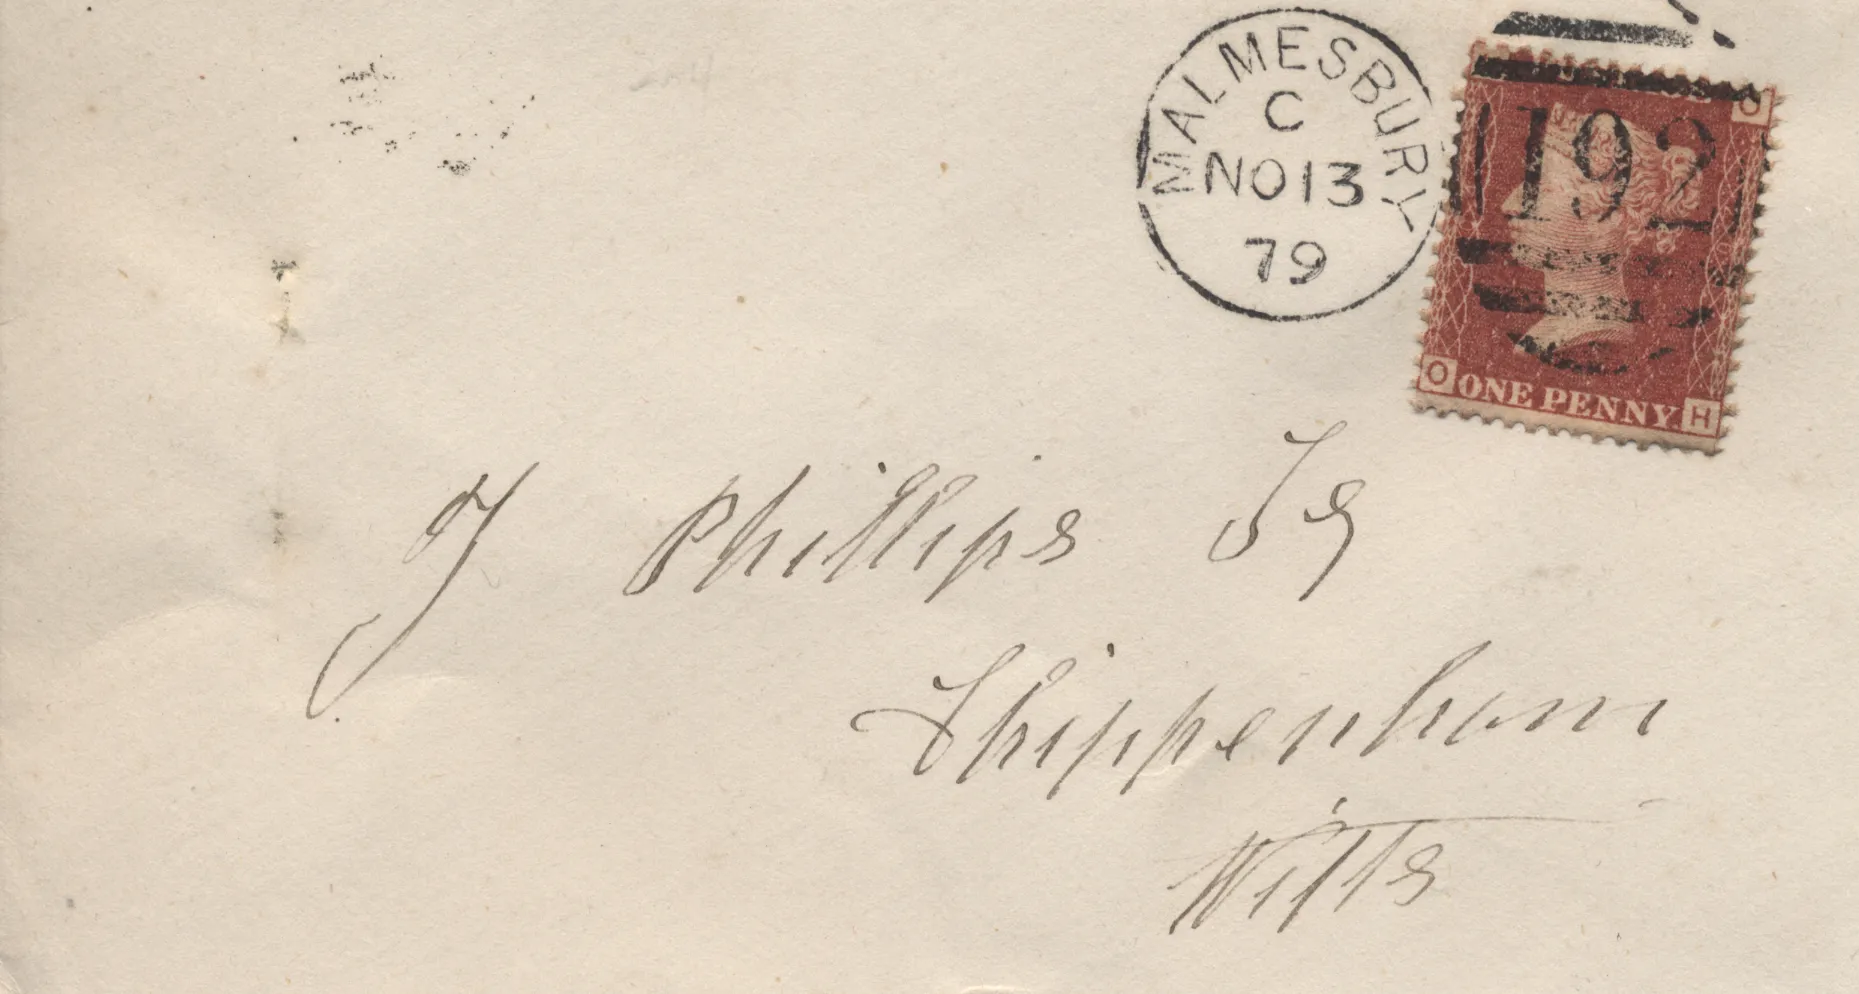 MALMESBURY
C
NO 13
79
192
O
H
ONE PENNY.
J Phillips Esq
Chippenham
Wilts